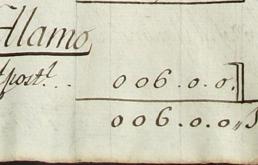 Alamo
post.l . . 006.0.0.
006.0.0,,